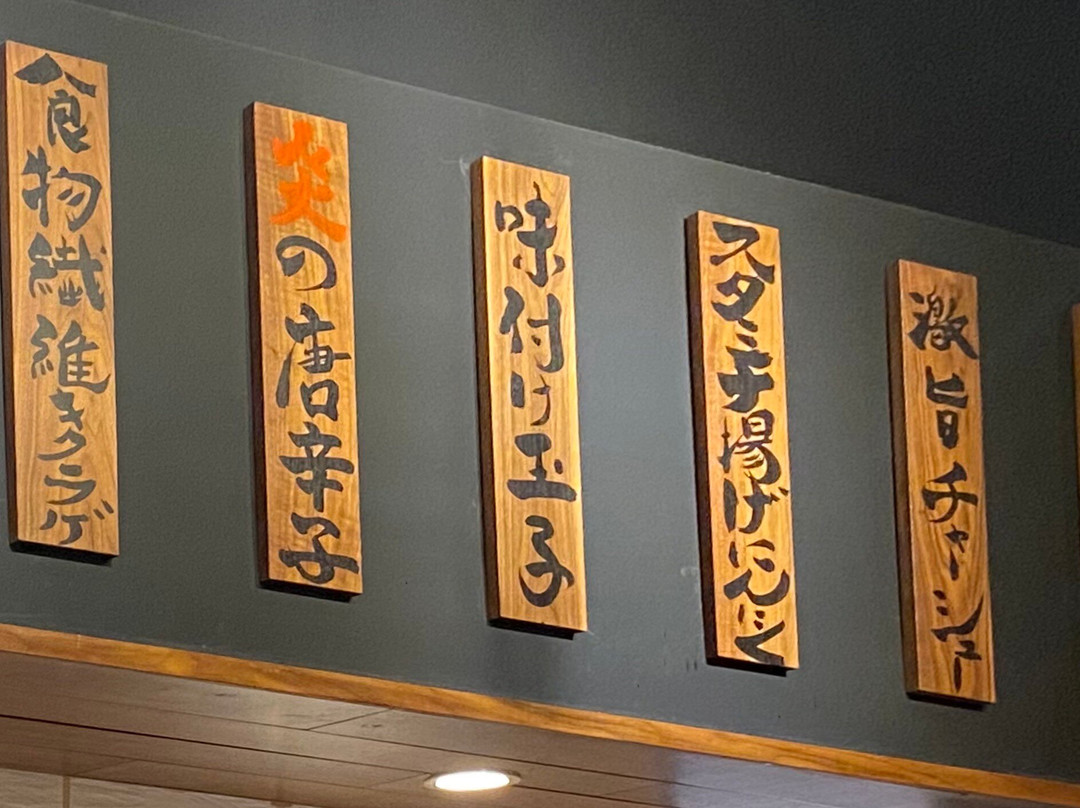 激旨チャーシュー
スタミナ揚げにんにく
味付け玉子
炎の唐辛子
食物繊維キクラゲ